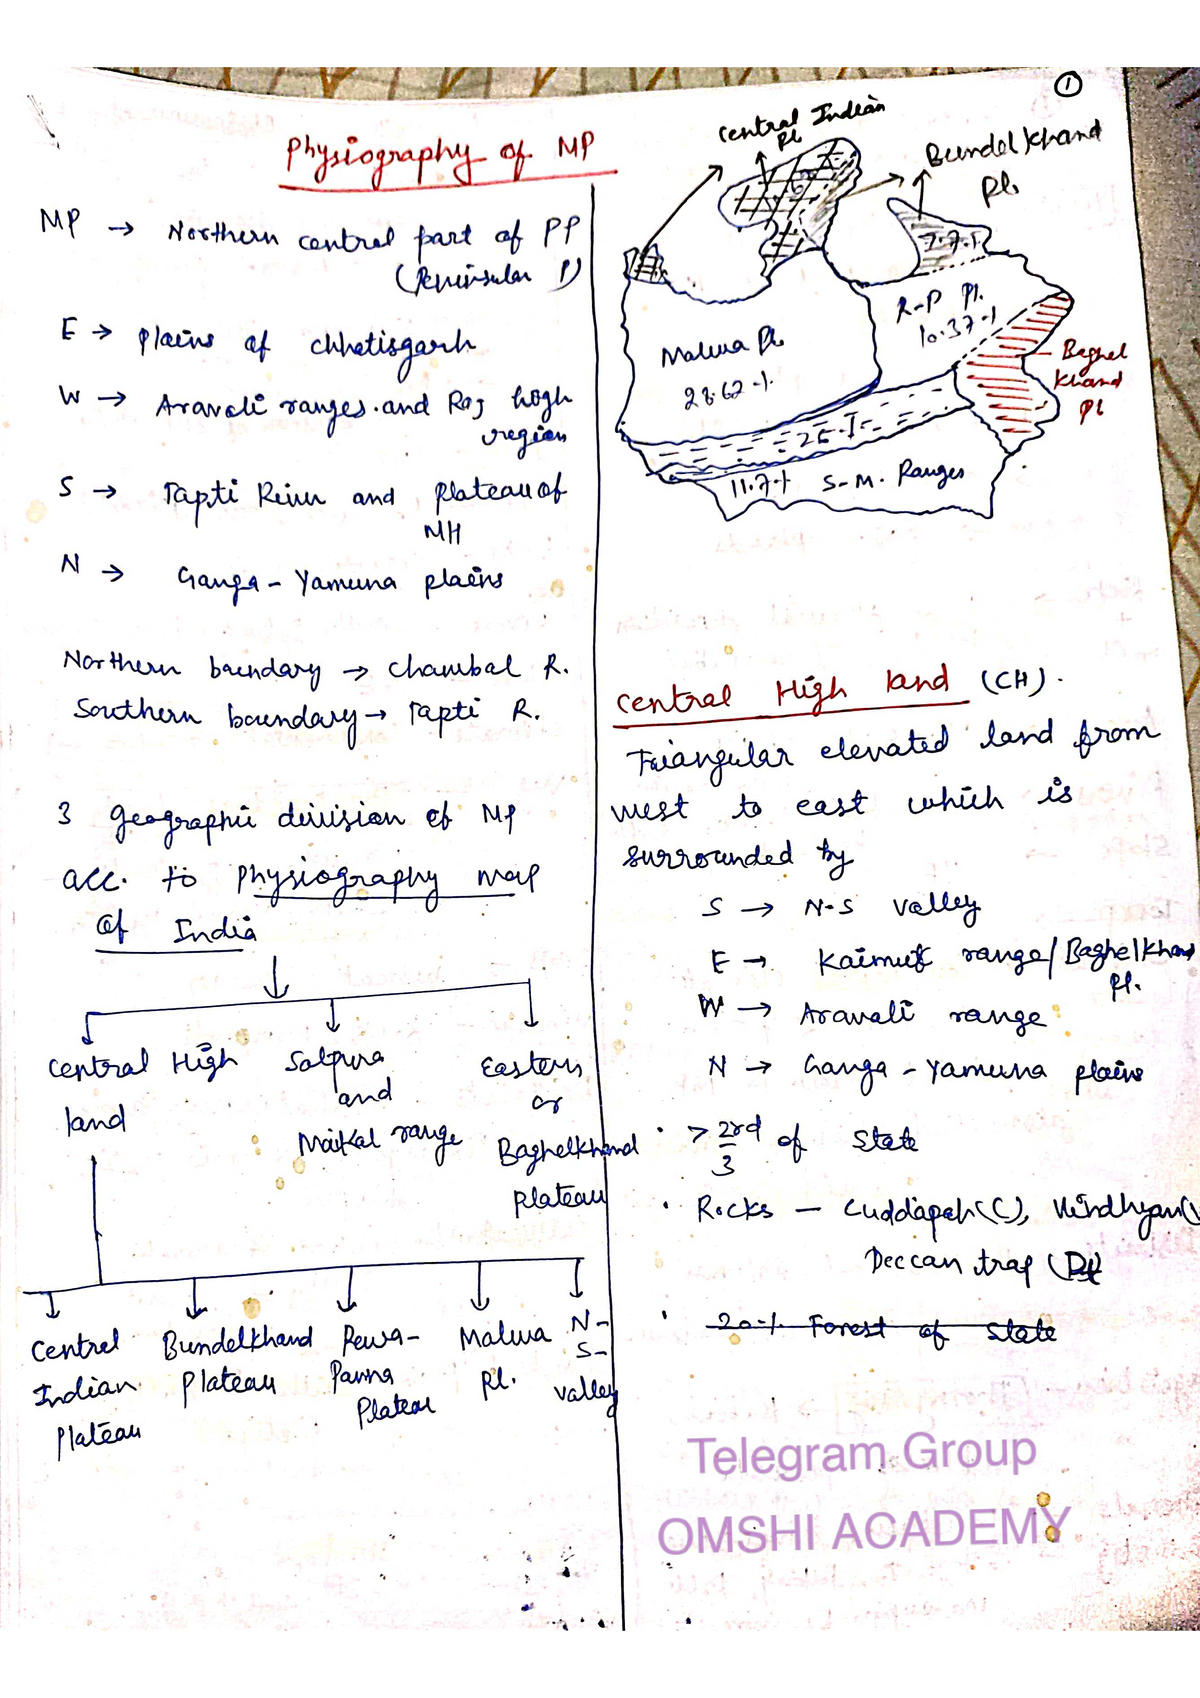 1
Physiography of MP
MP → Northern central part of PP
(Peninsular P)
E → plains of chhatisgarh
W → Aravali ranges and Raj high
region
S → Tapti River and plateau of
MH
N → Ganga - Yamuna plains
Northern boundary → Chambal R.
Southern boundary → Tapti R.
3 geographic division of MP
acc. to physiography map
of India
Central High
land
Satpura
and
Maikal range
Eastern
or
Baghelkhand
plateau
Central
Indian
plateau
Bundelkhand
Plateau
Rewa-
Panna
Plateau
Malwa
Pl.
N-
S-
valley
Central Indian
Pl
Bundelkhand
Pl.
7.7.1.
R-P Pl.
10.37.1
Malwa Pl.
28.62.1.
Baghel
Khand
Pl
25.1.
11.7.1 S-M. Ranges
Central High land (CH).
Triangular elevated land from
west to east which is
surrounded by
S → N-S valley
E → Kaimur range/Baghelkhand
Pl.
W → Aravali range
N → Ganga - Yamuna plains
• > 2rd of State
3
• Rocks — Cuddapah (C), Vindhyan (
Deccan trap (
• 20.1. Forest of state
Telegram Group
OMSHI ACADEMY